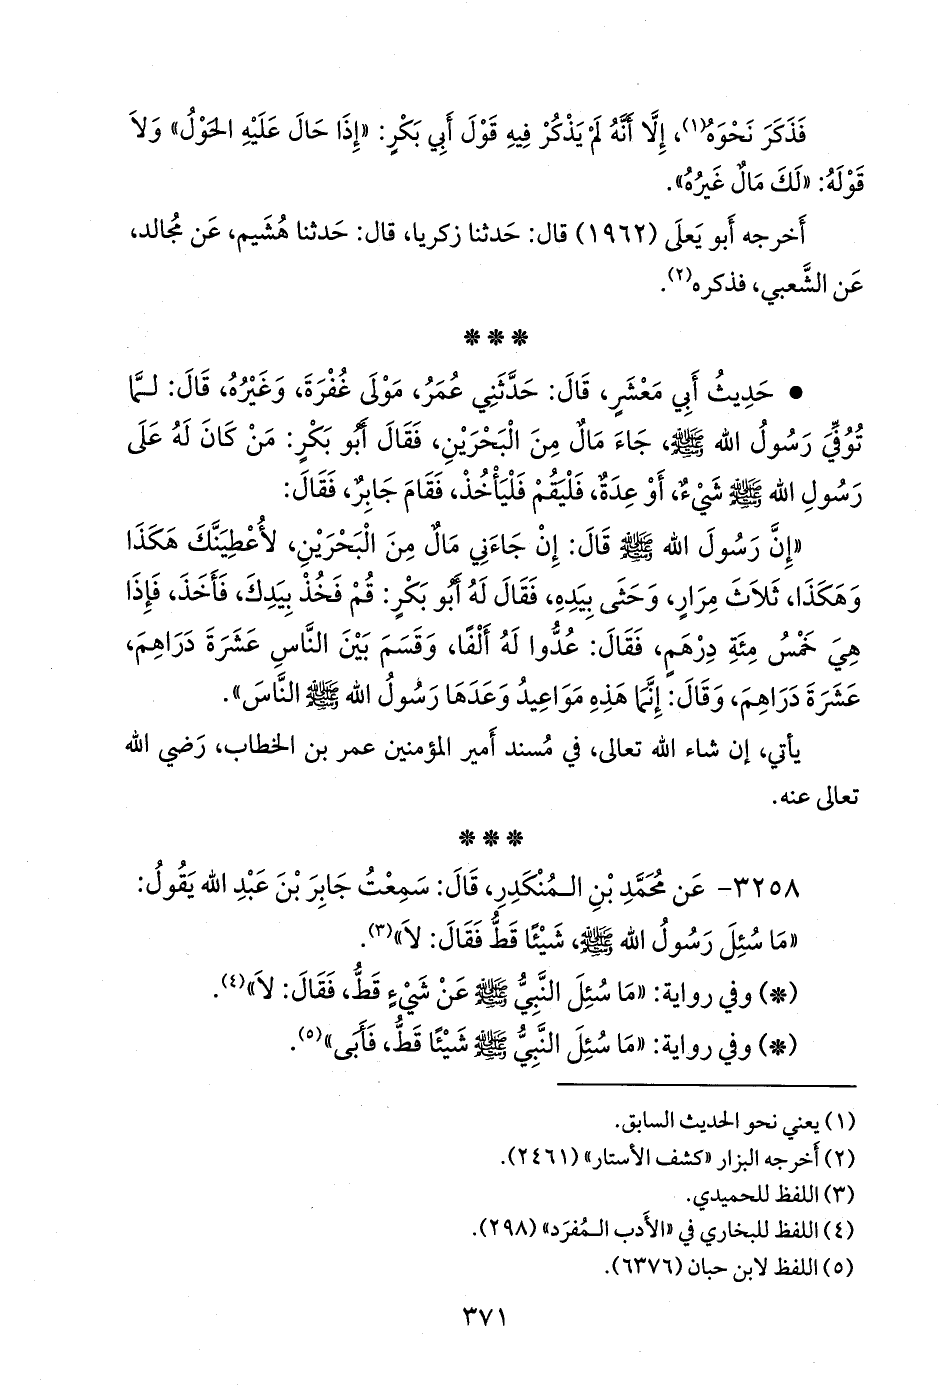 فَذَكَرَ نَحْوَهُ(١)، إِلَّا أَنَّهُ لَمْ يَذْكُرْ فِيهِ قَوْلَ أَبِي بَكْرٍ: «إِذَا حَالَ عَلَيْهِ الحَوْلُ» وَلاَ
قَوْلَهُ: «لَكَ مَالٌ غَيرُهُ».
أَخرجه أَبو يَعلَى (١٩٦٢) قال: حَدثنا زكريا، قال: حَدثنا هُشَيم، عَن مُجالد،
عَن الشَّعبي، فذكره(٢).
* * *
• حَدِيثُ أَبِي مَعْشَرٍ، قَالَ: حَدَّثَنِي عُمَرُ، مَوْلَى غُفْرَةَ، وَغَيْرُهُ، قَالَ: لـمَّا
تُوُفِّيَ رَسُولُ الله ﷺ، جَاءَ مَالٌ مِنَ الْبَحْرَيْنِ، فَقَالَ أَبُو بَكْرٍ: مَنْ كَانَ لَهُ عَلَى
رَسُولِ الله ﷺ شَيْءٌ، أَوْ عِدَةٌ، فَلْيَقُمْ فَلْيَأْخُذْ، فَقَامَ جَابِرٌ، فَقَالَ:
«إِنَّ رَسُولَ الله ﷺ قَالَ: إِنْ جَاءَنِي مَالٌ مِنَ الْبَحْرَيْنِ، لأُعْطِيَنَّكَ هَكَذَا
وَهَكَذَا، ثَلاَثَ مِرَارٍ، وَحَثَى بِيَدِهِ، فَقَالَ لَهُ أَبُو بَكْرٍ: قُمْ فَخُذْ بِيَدِكَ، فَأَخَذَ، فَإِذَا
هِيَ خَمْسُ مِئَةِ دِرْهَمٍ، فَقَالَ: عُدُّوا لَهُ أَلْفًا، وَقَسَمَ بَيْنَ النَّاسِ عَشَرَةَ دَرَاهِمَ،
عَشَرَةَ دَرَاهِمَ، وَقَالَ: إِنَّمَا هَذِهِ مَوَاعِيدُ وَعَدَهَا رَسُولُ الله ﷺ النَّاسَ».
يأتي، إن شاء الله تعالى، في مُسند أَمير المؤمنين عمر بن الخطاب، رَضي الله
تعالى عنه.
* * *
٣٢٥٨- عَن مُحَمَّدِ بْنِ الـمُنْكَدِرِ، قَالَ: سَمِعْتُ جَابِرَ بْنَ عَبْدِ الله يَقُولُ:
«مَا سُئِلَ رَسُولُ الله ﷺ، شَيْئًا قَطُّ فَقَالَ: لاَ»(٣).
(*) وفي رواية: «مَا سُئِلَ النَّبِيُّ ﷺ عَنْ شَيْءٍ قَطُّ، فَقَالَ: لاَ»(٤).
(*) وفي رواية: «مَا سُئِلَ النَّبِيُّ ﷺ شَيْئًا قَطُّ، فَأَبَى»(٥).
(١) يعني نحو الحديث السابق.
(٢) أَخرجه البزار «كشف الأستار» (٢٤٦١).
(٣) اللفظ للحميدي.
(٤) اللفظ للبخاري في «الأَدب الـمُفرَد» (٢٩٨).
(٥) اللفظ لابن حبان (٦٣٧٦).
٣٧١